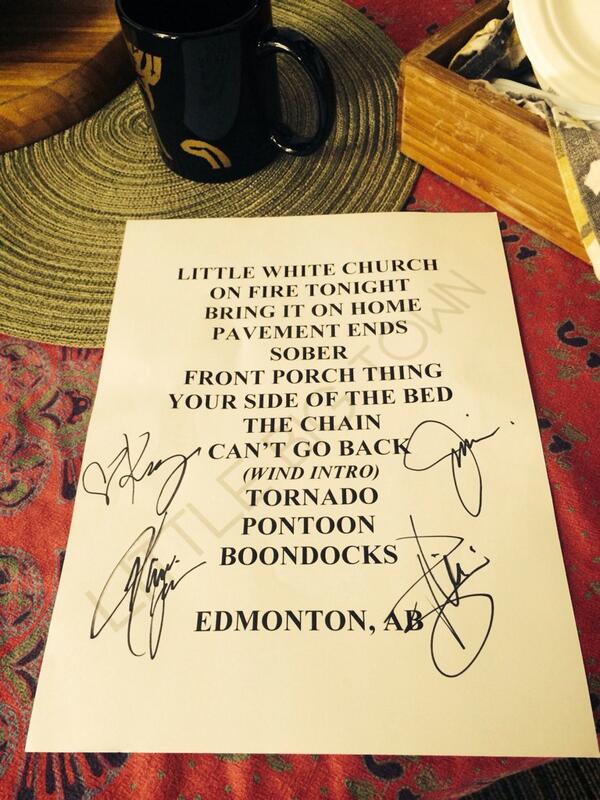 LITTLE WHITE CHURCH
ON FIRE TONIGHT
BRING IT ON HOME
PAVEMENT ENDS
SOBER
FRONT PORCH THING
YOUR SIDE OF THE BED
THE CHAIN
CAN'T GO BACK
(WIND INTRO)
TORNADO
PONTOON
BOONDOCKS
EDMONTON, AB
LITTLE BIG TOWN